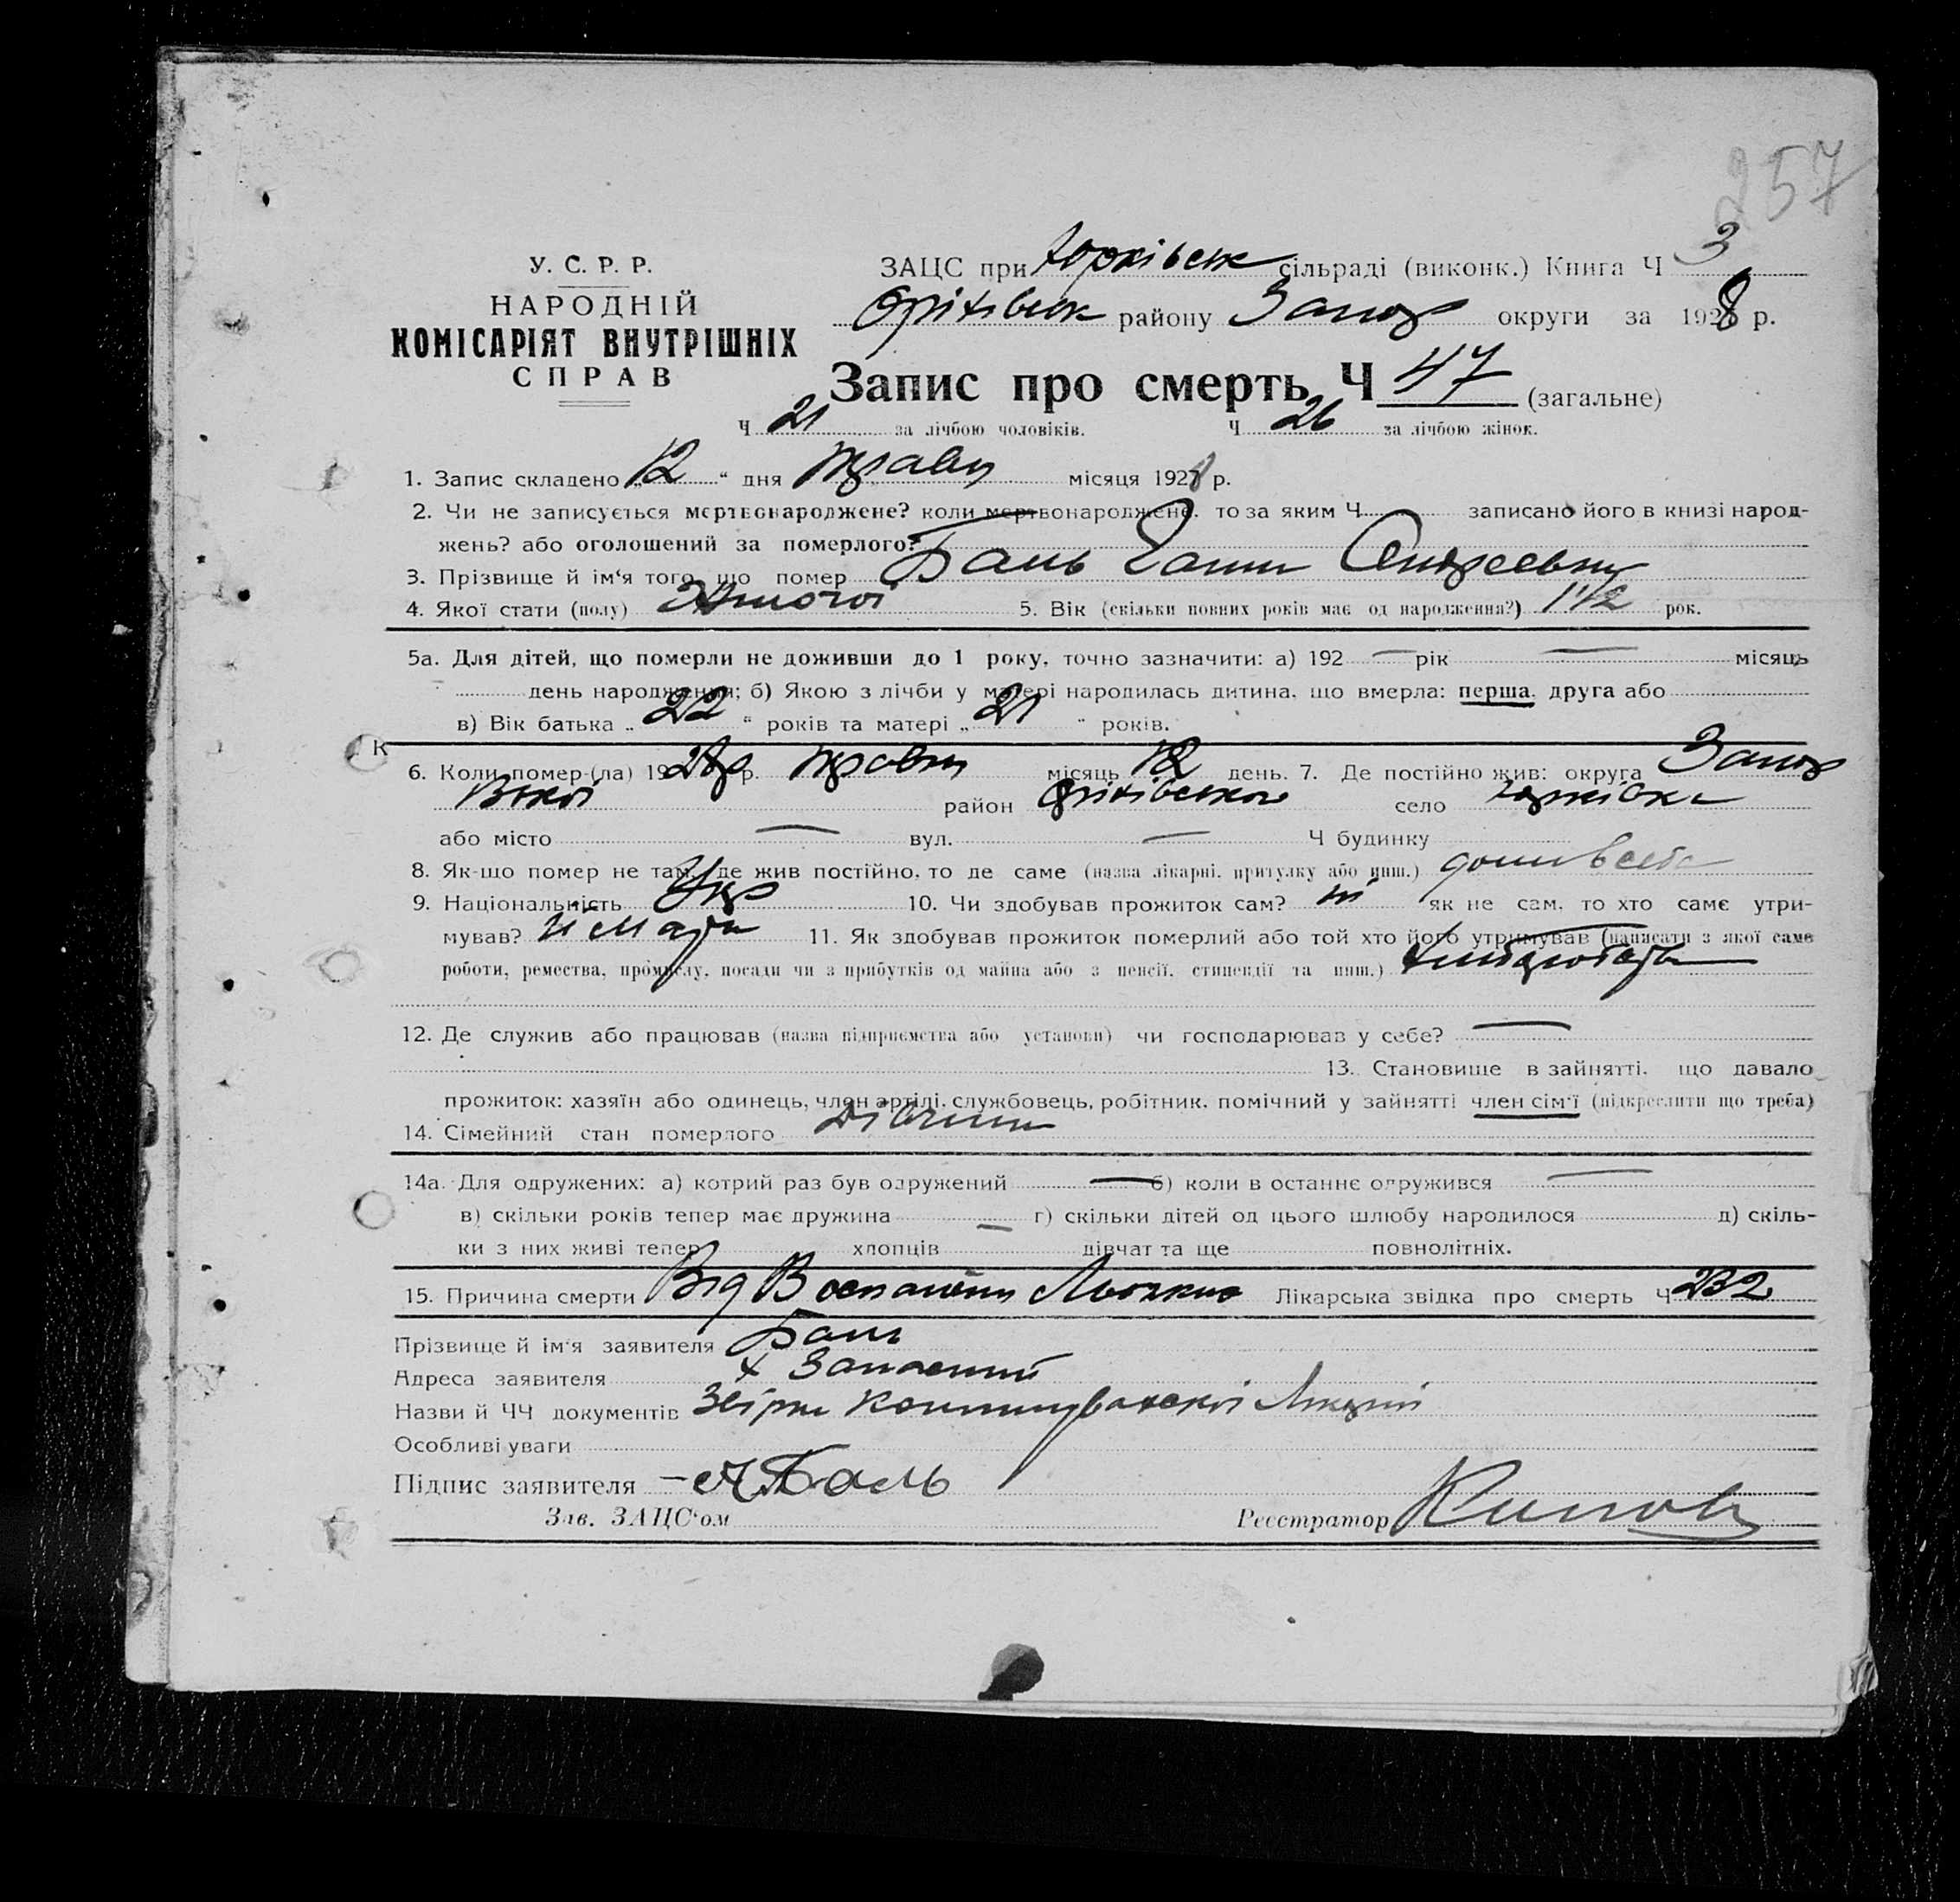 257
У. С. Р. Р.
НАРОДНІЙ
КОМІСАРІЯТ ВНУТРІШНІХ
СПРАВ
ЗАЦС при Юрківськ сільраді (виконк.) Книга Ч 3
Оріхівськ району Запор округи за 1928 р.
Запис про смерть Ч 47 (загальне)
Ч 21 за лічбою чоловіків. Ч 26 за лічбою жінок.
1. Запис складено „12“ дня травн місяця 1928 р.
2. Чи не записується мертвонароджене? коли мертвонароджене, то за яким Ч записано його в книзі народ-
жень? або оголошений за померлого?
3. Прізвище й ім‘я того, що помер Баль Ганн Андреевн
4. Якої стати (полу) Жіночої 5. Вік (скільки повних років має од народження?) 1 1/2 рок.
5а. Для дітей, що померли не доживши до 1 року, точно зазначити: а) 192 — рік — місяць
день народження; б) Якою з лічби у матері народилась дитина, що вмерла: перша, друга або
в) Вік батька „22“ років та матері „21“ років.
К
6. Коли помер-(ла) 1928 р. травн місяць 12 день. 7. Де постійно жив: округа Запор
район Оріхівського село Юрківка
або місто — вул. — Ч будинку
8. Як-що помер не там, де жив постійно, то де саме (назва лікарні, притулку або инш.)
9. Національність Укр 10. Чи здобував прожиток сам? ні як не сам, то хто саме утри-
мував? 11. Як здобував прожиток померлий або той хто його утримував (написати з якої саме
роботи, ремества, промислу, посади чи з прибутків од майна або з пенсії, стипендії та инш.)
12. Де служив або працював (назва підприємства або установи) чи господарював у себе? —
13. Становище в зайнятті, що давало
прожиток: хазяїн або одинець, член артілі, службовець, робітник, помічний у зайнятті член сім‘ї (підкреслити що треба)
14. Сімейний стан померлого Дівчина
14а. Для одружених: а) котрий раз був одружений — б) коли в останнє одружився —
в) скільки років тепер має дружина — г) скільки дітей од цього шлюбу народилося д) скіль-
ки з них живі тепер хлопців дівчат та ще повнолітніх.
15. Причина смерти Від Воспаления Лёгких Лікарська звідка про смерть Ч 232
Прізвище й ім‘я заявителя Баль
Адреса заявителя х
Назви й ЧЧ документів
Особливі уваги
Підпис заявителя Баль
Зав. ЗАЦС‘ом Реєстратор